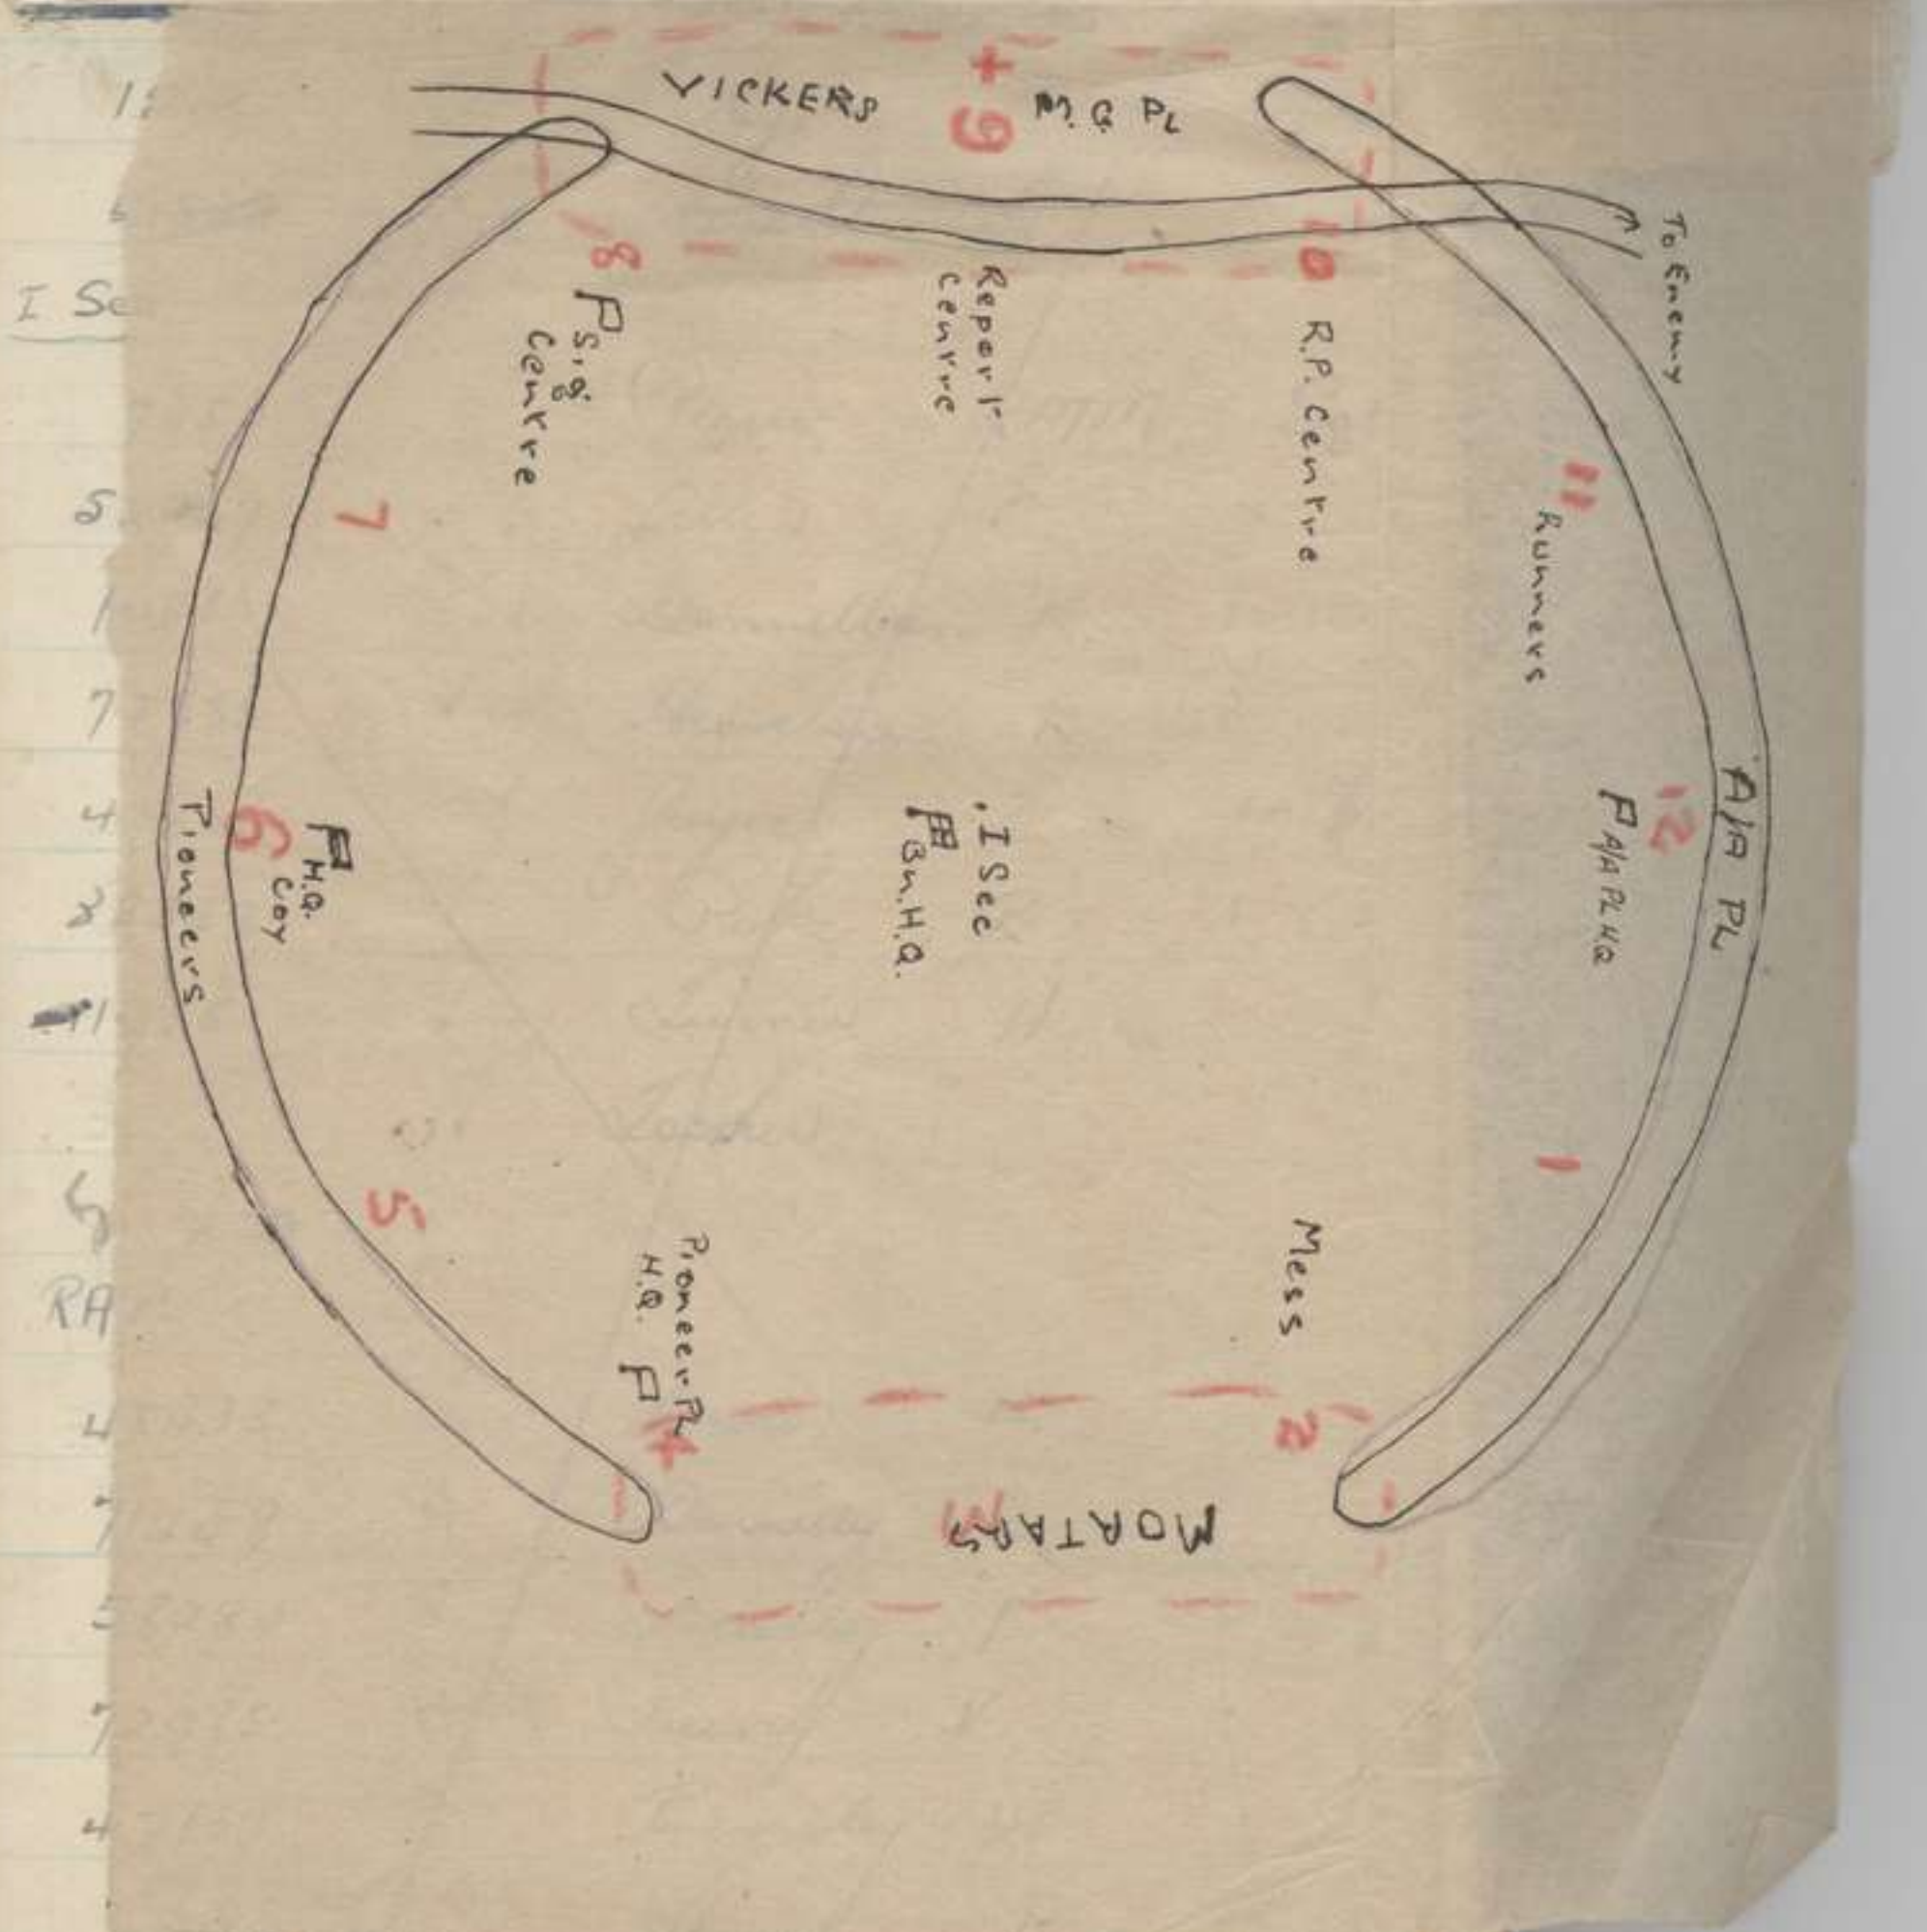 VICKERS
+
9
M.G. PL
To Enemy
8
Sig
Centre
Report
Centre
10
R.P. Centre
11
Runners
7
A/A PL
12
A/A PL HQ
. I Sec
Bn. H.Q.
H.Q.
Coy
6
Pioneers
1
Mess
2
5
Pioneer PL
H.Q.
4
3
MORTARS
I Se
5
7
4
2
RA
4
7
5
7
4